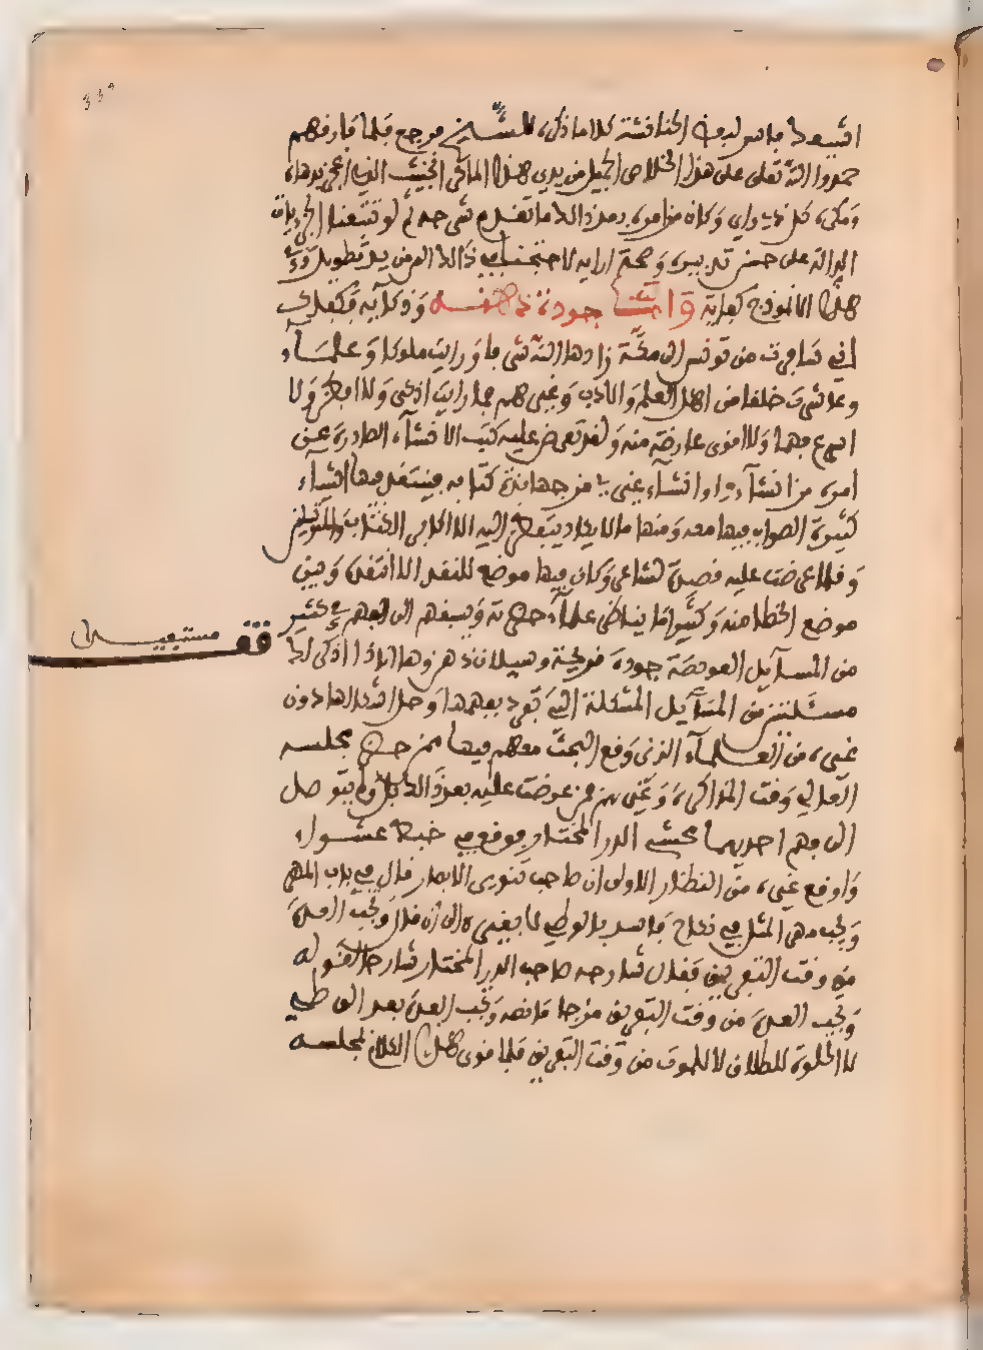 339
حمدوا الله تعلى على هذا الخلاص الجميل من يدي هذا الماكر الخبيث الذي
ومكره كل ذي راي وكان من امره بعد ذالك ما تقدم شرحه ثم لو تتبعنا الجزئيات
الدالة على حسن تدبيره وصحة ارايه لاحتجنا في ذالك الغرض يد تطويل
هذا الانموذج كفاية واما جودة ذهنه وذكايه فكفلك
اني سافرت من تونس الى مكة زادها الله شرفا ورايت ملوكا وعلماء
وعاشرت خلقا من اهل العلم والادب وغيرهم فما رايت اذكى ولا افطن ولا
اسرع فهما ولا اقوى عارضة منه ولقد تعرض عليه كتب الانشاء الصادرة عن
امره من انشآءي او انشاء غيري من جهابذة كتابه فينتقد فيها اشياء
كثيرة الصواب فيها معه ومنها ما لا يكاد يتفطن اليه الا اكابر الكتاب
وقلما عرضت عليه قصيدة لشاعر وكان فيها موضع للنقد الا انتقده وبين
موضع الخطا منه وكثيرا ما يناظر علماء حضرته ويسبقهم الى الفهم في كثير
من المسآيل العويصة جودة قريحة وسيلان ذهن وها انا ذا اذكر لك
مسئلتين من المسآيل المشكلة التي تفرد بفهمها وحل اشكالها دون
غيره من العلمآء الذين وقع البحث معهم فيها ممن حضر مجلسه
العالي وقت المذاكرة وغيرهم ممن عرضت عليه بعد ذالك فلم يتوصل
الى فهم احديهما محشي الدر المختار فوقع في خبط عشواء
واوقع غيره من النظار الاولى ان صاحب تنوير الابصار قال في باب المهر
ويجب مهر المثل في نكاح فاسد بالوطي لا بغيره الى ان قال وتجب العدة
من وقت التفريق فقال شارحه صاحب الدر المختار شارحا لقوله
وتجب العدة من وقت التفريق مزجا ما نصه وتجب العدة بعد الوطي
لا الخلوة للطلاق لا للموت من وقت التفريق فلما قرئ هذا الكلام بمجلسه
قف